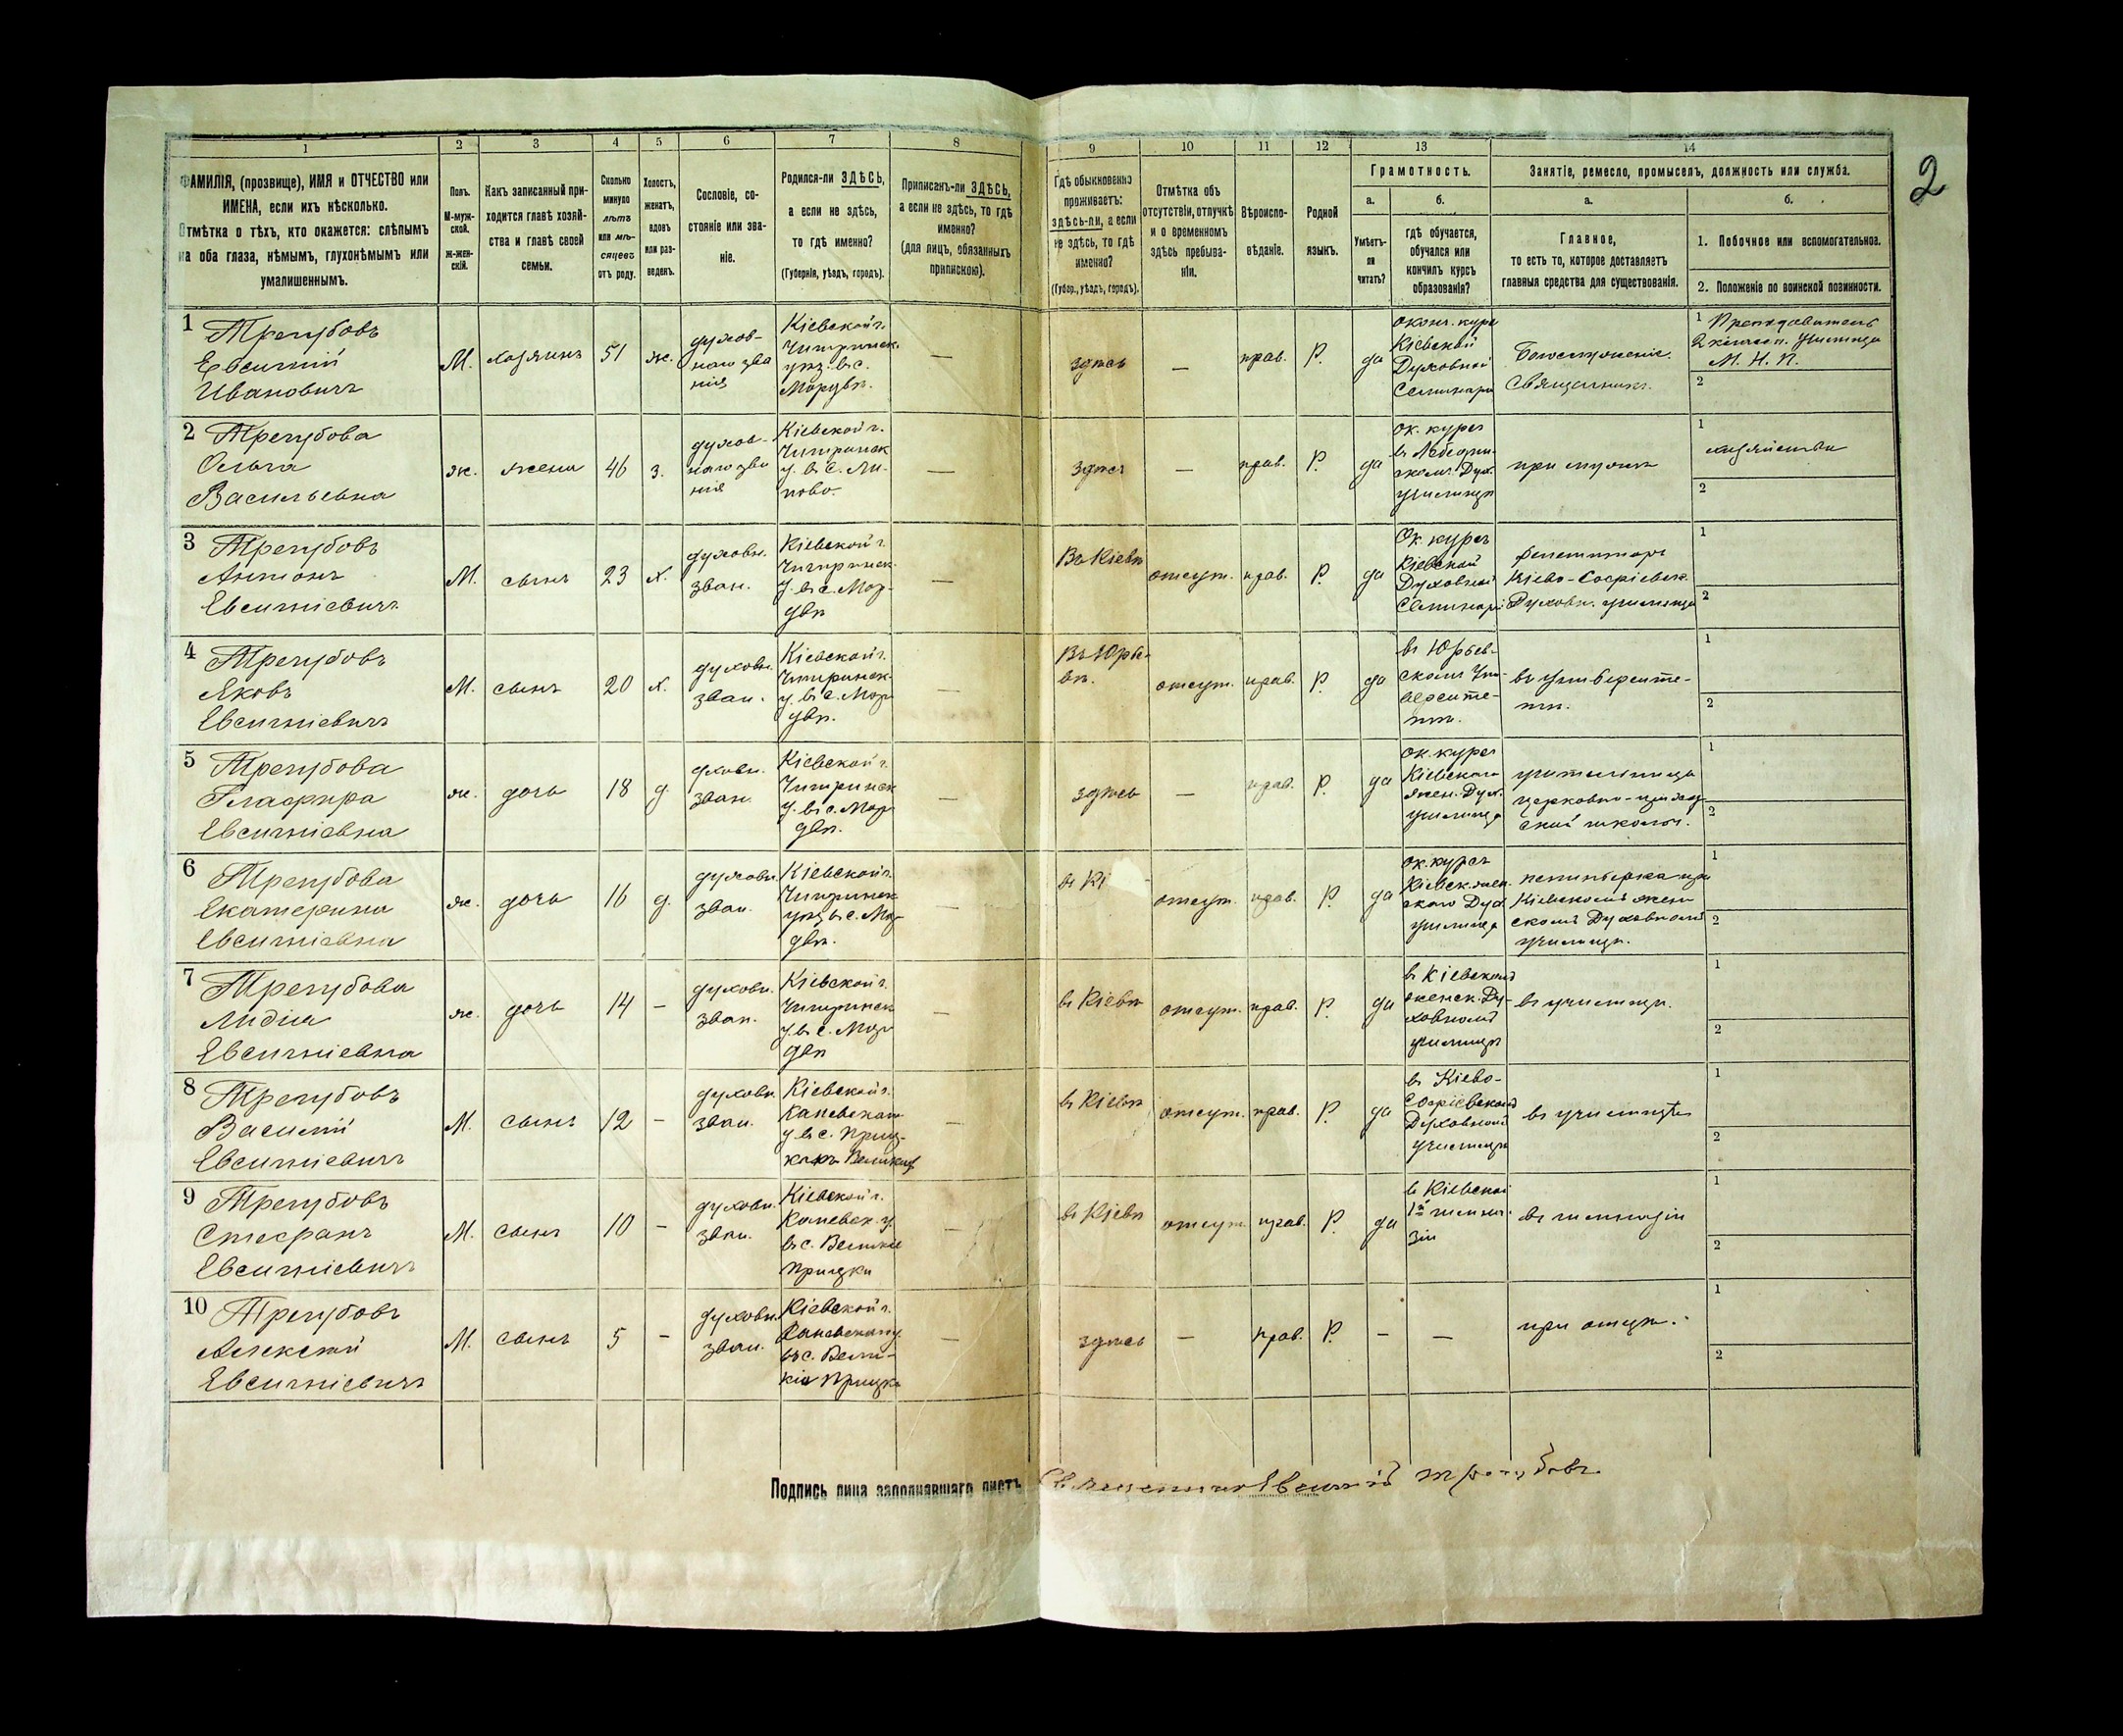 2
1 2 3 4 5 6 7 8 9 10 11 12 13 14
ФАМИЛІЯ, (прозвище), ИМЯ и ОТЧЕСТВО или
ИМЕНА, если ихъ нѣсколько.
Отмѣтка о тѣхъ, кто окажется: слѣпымъ
на оба глаза, нѣмымъ, глухонѣмымъ или
умалишеннымъ.
Полъ.
М-муж-
ской.
Ж-жен-
скій.
Какъ записанный при-
ходится главѣ хозяй-
ства и главѣ своей
семьи.
Сколько
минуло
лѣтъ
или мѣ-
сяцевъ
отъ роду.
Холостъ,
женатъ,
вдовъ
или раз-
веденъ.
Сословіе, со-
стояніе или зва-
ніе.
Родился-ли ЗДѢСЬ,
а если не здѣсь,
то гдѣ именно?
(Губернія, уѣздъ, городъ).
Приписанъ-ли ЗДѢСЬ,
а если не здѣсь, то гдѣ
именно?
(для лицъ, обязанныхъ
припискою).
Гдѣ обыкновенно
проживаетъ:
здѣсь-ли, а если
не здѣсь, то гдѣ
именно?
(Губер., уѣздъ, городъ).
Отмѣтка объ
отсутствіи, отлучкѣ
и о временномъ
здѣсь пребыва-
ніи.
Вѣроиспо-
вѣданіе.
Родной
языкъ.
Грамотность.
а.
Умѣетъ-
ли
читать?
б.
гдѣ обучается,
обучался или
кончилъ курсъ
образованія?
Занятіе, ремесло, промыселъ, должность или служба.
а.
Главное,
то есть то, которое доставляетъ
главныя средства для существованія.
б.
1. Побочное или вспомогательное.
2. Положеніе по воинской повинности.
1 Трегубовъ
Евсигній
Ивановичъ
М. хозяинъ 51 ж.
духов-
наго зва
нія
Кіевской г.
Чигринск.
уѣз. въ с.
Мордвѣ.
—
здѣсь — прав. Р. да
оконч. курс
Кіевской
Духовной
Семинаріи
Богослуженіе.
Священникъ.
1 Преподаватель
2 классн. Училища
М. Н. П.
2
2 Трегубова
Ольга
Васильевна
ж. жена 46 з.
духов-
наго зва
нія
Кіевской г.
Чигринск
у. въ с. Ли-
пово.
—
здѣсь — прав. Р. да
ок. курсъ
въ Лебедин-
скомъ Дух.
училищѣ
при мужѣ
1
хозяйства
2
3 Трегубовъ
Антонъ
Евсигніевичъ
М. сынъ 23 х.
духовн.
зван.
Кіевской г.
Чигринск.
у. въ с. Мор-
двѣ
—
Въ Кіевѣ отсут. прав. Р. да
Ок. курсъ
Кіевской
Духовной
Семинаріи
репетиторъ
Кіево-Софіевск.
Духовн. училища
1
2
4 Трегубовъ
Яковъ
Евсигніевичъ
М. сынъ 20 х.
духовн.
зван.
Кіевской г.
Чигринск.
у. въ с. Мор-
двѣ.
—
Въ Юрье-
вѣ.
отсут. прав. Р. да
въ Юрьев-
скомъ Уни-
версите-
тѣ.
въ университе-
тѣ.
1
2
5 Трегубова
Глафира
Евсигніевна
ж. дочь 18 д.
духовн.
зван.
Кіевской г.
Чигринск
у. въ с. Мор-
двѣ.
—
здѣсь — прав. Р. да
ок. курсъ
Кіевскаго
жен. Дух.
училища
учительница
церковно-приход-
ской школы.
1
2
6 Трегубова
Екатерина
Евсигніевна
ж. дочь 16 д.
духовн.
зван.
Кіевской г.
Чигринск
уѣз въ с. Мор-
двѣ.
—
въ Кі
отсут. прав. Р. да
ок. курсъ
Кіевск. жен-
скаго Дух.
училища
пепиньерка при
Кіевскомъ жен
скомъ Духовномъ
училищѣ.
1
2
7 Трегубова
Лидія
Евсигніевна
ж. дочь 14 —
духовн.
зван.
Кіевской г.
Чигринск
у. въ с. Мор-
двѣ
—
въ Кіевѣ отсут. прав. Р. да
въ Кіевскомъ
женск. Ду-
ховномъ
училищѣ
въ училищѣ.
1
2
8 Трегубовъ
Василій
Евсигніевичъ
М. сынъ 12 —
духовн.
зван.
Кіевской г.
Каневскаго
у. въ с. Приц-
кахъ Великихъ
—
въ Кіевѣ отсут. прав. Р. да
въ Кіево-
Софіевскомъ
Духовномъ
училищѣ
въ училищѣ
1
2
9 Трегубовъ
Стефанъ
Евсигніевичъ
М. сынъ 10 —
духовн.
зван.
Кіевской г.
Каневск. у.
въ с. Великіе
Прицки
—
въ Кіевѣ отсут. прав. Р. да
въ Кіевской
1й гимна-
зіи
въ гимназіи
1
2
10 Трегубовъ
Алексѣй
Евсигніевичъ
М. сынъ 5 —
духовн.
зван.
Кіевской г.
Каневскаго у.
въ с. Вели-
кія Прицки
—
здѣсь — прав. Р. — —
при отцѣ.
1
2
Подпись лица заполнявшаго листъ Священникъ Евсигній Трегубовъ